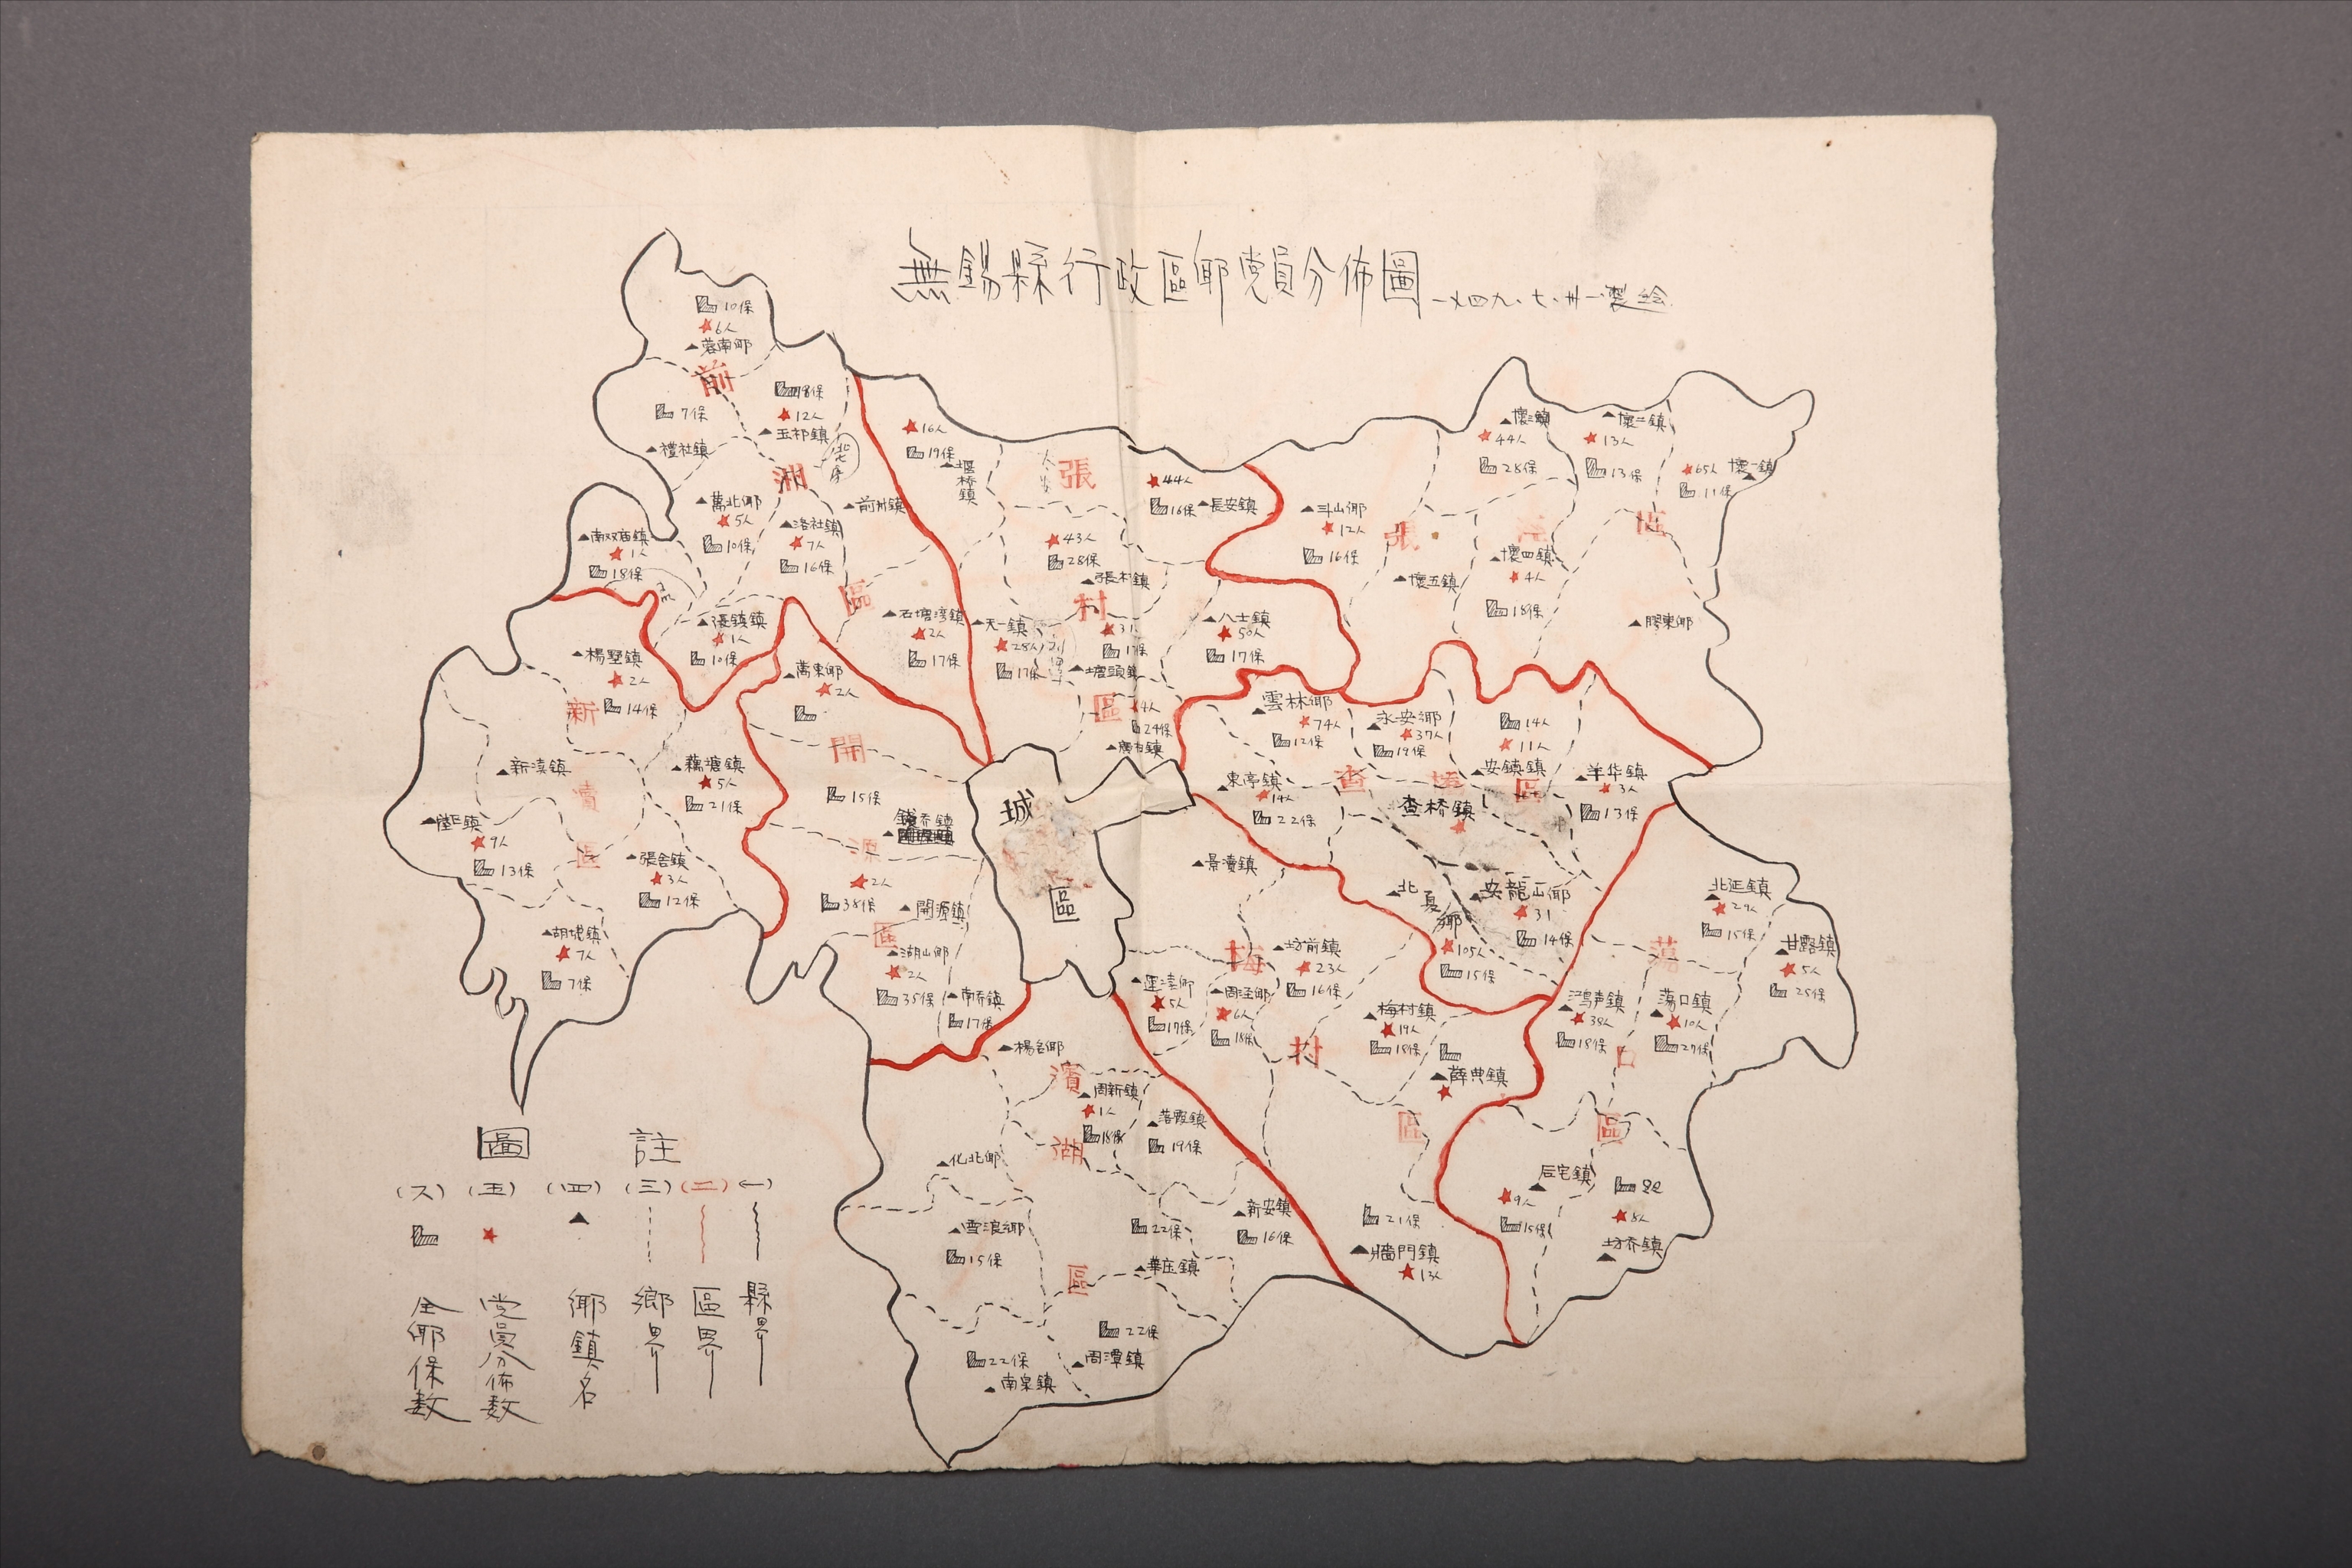 無錫縣行政區鄉党員分佈圖 一九四九、七、廿一、製绘
10保
6人
蓉南鄉
7保
禮社鎮
18保
12人
玉祁鎮
前洲區
前州鎮
萬北鄉
5人
10保
洛社鎮
7人
16保
南双庙鎮
1人
18保
張鎮鎮
1人
10保
石塘湾鎮
2人
17保
16人
19保
堰桥鎮
張村區
44人
16保
長安鎮
43人
28保
張村鎮
天一鎮
28人
17保
31
17保
塘頭鎮
八士鎮
50人
17保
4人
24保
廣市鎮
斗山鄉
12人
16保
張涇區
懷三鎮
44人
28保
懷二鎮
13人
13保
65人
懷一鎮
11保
懷五鎮
懷四鎮
4人
18保
膠東鄉
楊墅鎮
2人
14保
新瀆區
新瀆鎮
藕塘鎮
5人
21保
陡門鎮
9人
13保
張舍鎮
3人
12保
胡埭鎮
7人
7保
萬東鄉
2人
開源區
15保
錢桥鎮
2人
38保
開源鎮
湖山鄉
2人
35保
南桥鎮
17保
城區
雲林鄉
74人
12保
永安鄉
37人
19保
14人
11人
安鎮鎮
查橋區
東亭鎮
14人
22保
查桥鎮
羊尖鎮
3人
13保
北夏鄉
105人
15保
安龍山鄉
31
14保
景瀆鎮
梅村區
坊前鎮
23人
16保
運涇鄉
5人
17保
周涇鄉
6人
18保
梅村鎮
19人
18保
薛典鎮
21保
牆門鎮
13人
北延鎮
29人
15保
甘露鎮
5人
25保
蕩口區
鴻声鎮
38人
18保
蕩口鎮
10人
27保
后宅鎮
9人
15保
22
8人
坊桥鎮
楊名鄉
濱湖區
周新鎮
1人
18保
落霞鎮
19保
化北鄉
雪浪鄉
15保
22保
華庄鎮
新安鎮
16保
22保
周潭鎮
22保
南泉鎮
圖註
(一) 縣界
(二) 區界
(三) 鄉界
(四) 鄉鎮名
(五) 党員分佈数
(六) 全鄉保数